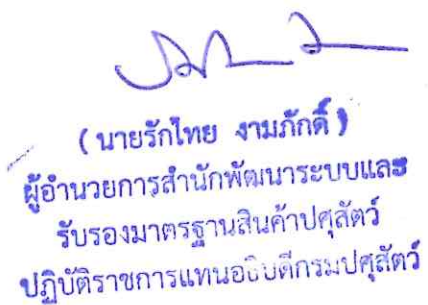 ( นายรักไทย งามภักดิ์ )
ผู้อำนวยการสำนักพัฒนาระบบและ
รับรองมาตรฐานสินค้าปศุสัตว์
ปฏิบัติราชการแทนอธิบดีกรมปศุสัตว์